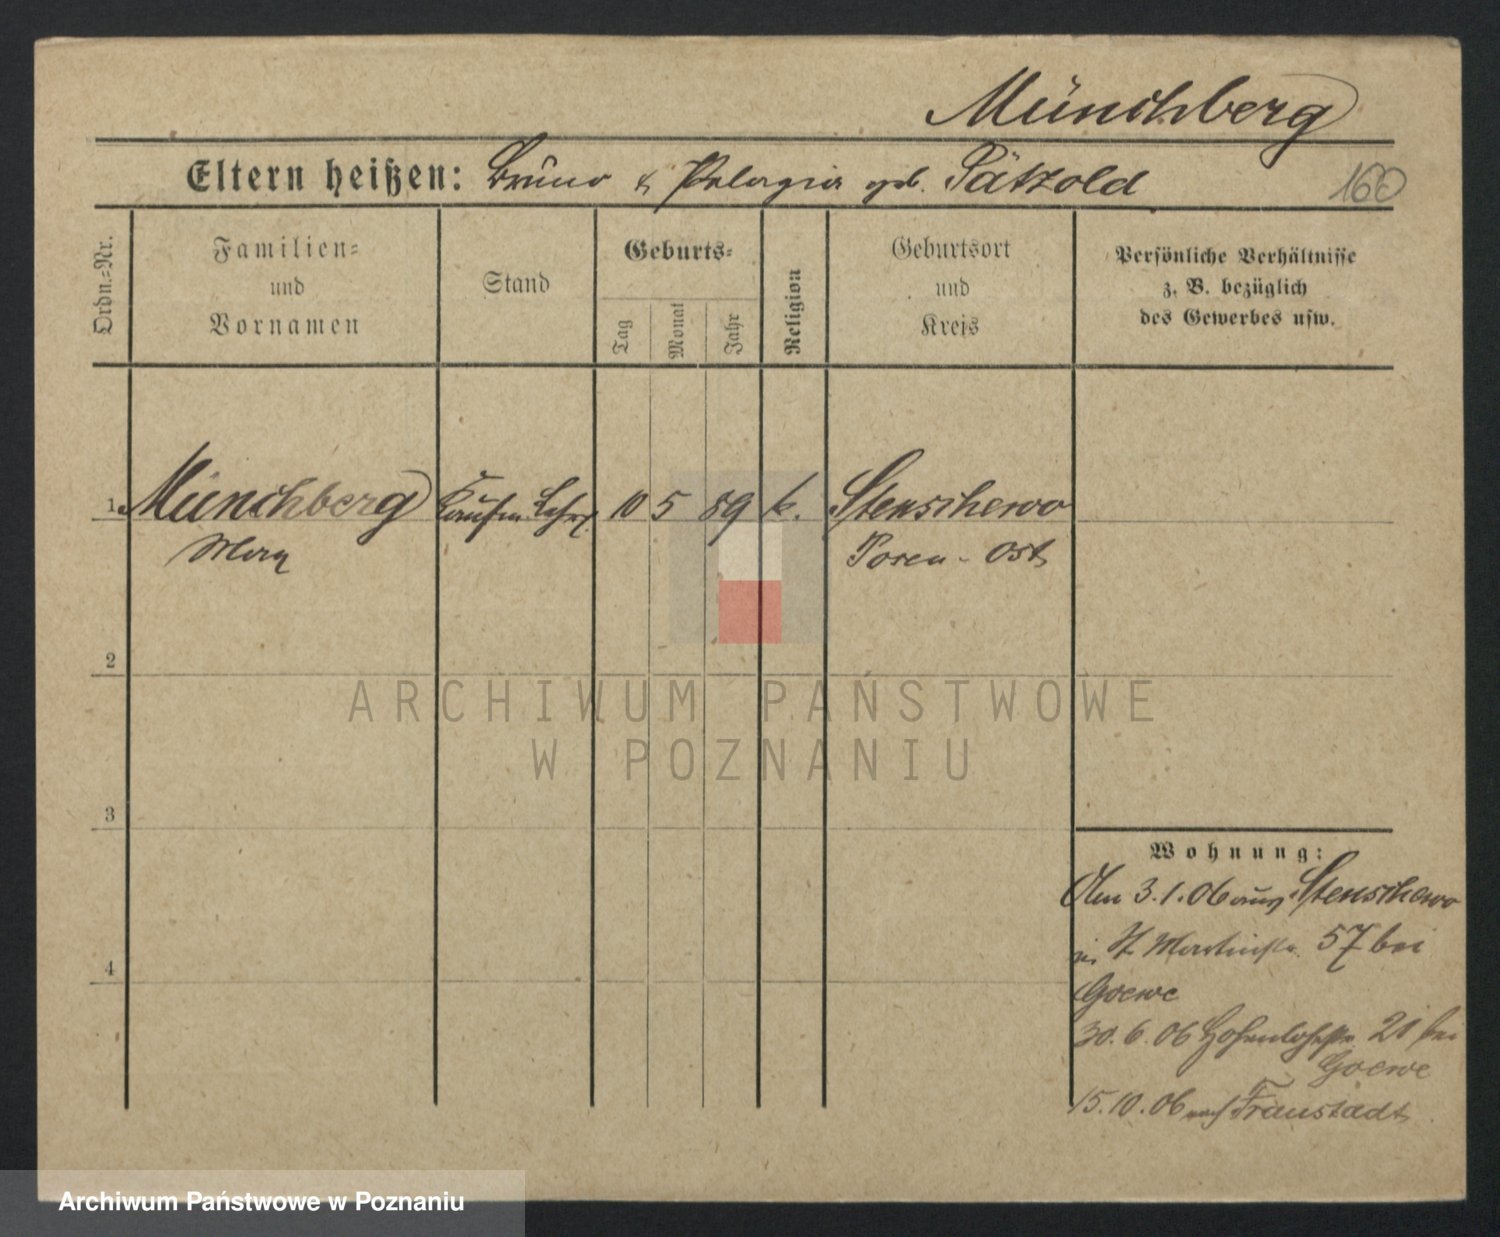 Münchberg
Eltern heißen: Bruno & Pelagia geb. Pätzold
160
Ordn.-Nr.
Familien-
und
Vornamen
Stand
Geburts-
Tag
Monat
Jahr
Religion
Geburtsort
und
Kreis
Persönliche Verhältnisse
z. B. bezüglich
des Gewerbes usw.
1 Münchberg Kaufm. Lehrl. 10 5 89 k. Stenschewo
Posen-Ost
2
ARCHIWUM PAŃSTWOWE
W POZNANIU
3
Wohnung:
Am 3.1.06 aus Stenschewo
in St Martinstr. 57 bei
4
Goewe
30.6.06 Hohenlohestr. 21 bei
Goewe
15.10.06 nach Fraustadt
Archiwum Państwowe w Poznaniu